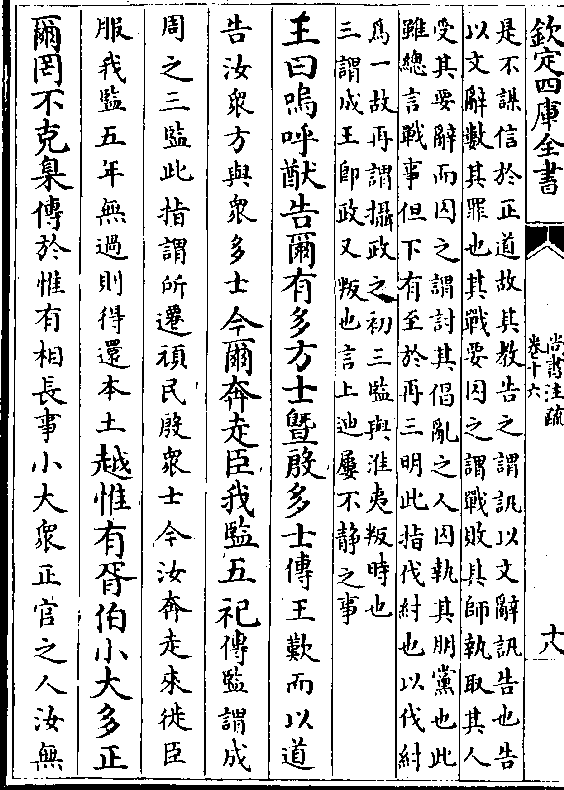 欽定四庫全書
尚書注疏
卷十六
十八
是不謀信於正道故其教告之謂訊以文辭訊告也告
以文辭數其罪也其戰要囚之謂戰敗其師執取其人
受其要辭而囚之謂討其倡亂之人囚執其朋黨也此
雖總言戰事但下有至於再三明此指伐紂也以伐紂
爲一故再謂攝政之初三監與淮夷叛時也
三謂成王即政又叛也言上迪屢不静之事
王曰嗚呼猷告爾有多方士曁殷多士傳王歎而以道
告汝衆方與衆多士今爾奔走臣我監五祀傳監謂成
周之三監此指謂所遷頑民殷衆士今汝奔走來徙臣
服我監五年無過則得還本土越惟有胥伯小大多正
爾罔不克臬傳於惟有相長事小大衆正官之人汝無